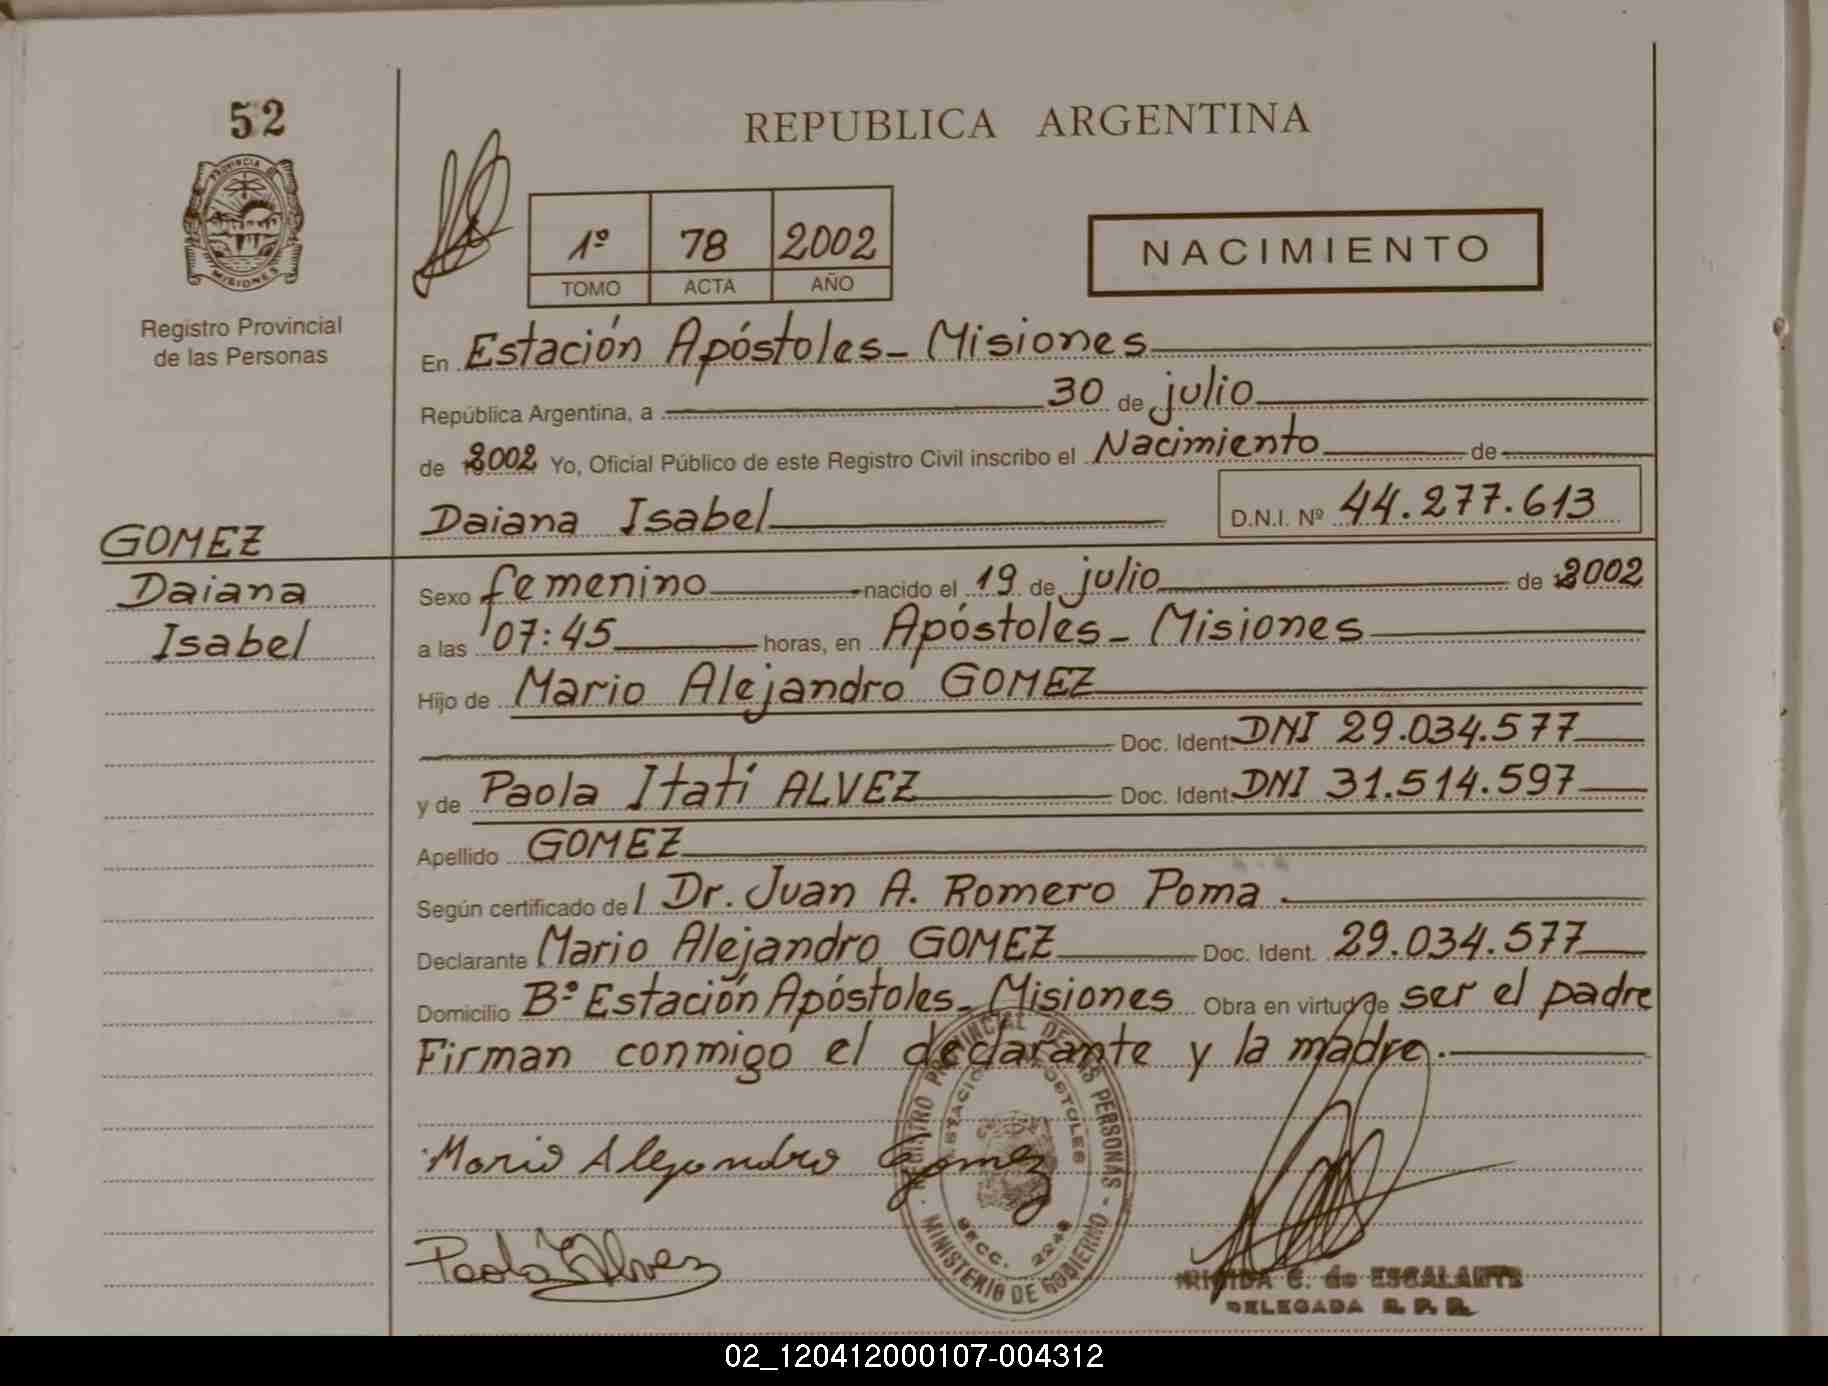 52
PROVINCIA DE
MISIONES
Registro Provincial
de las Personas
REPUBLICA ARGENTINA
1º 78 2002
TOMO ACTA AÑO
NACIMIENTO
En Estación Apóstoles - Misiones
República Argentina, a 30 de julio
de 2002 Yo, Oficial Público de este Registro Civil inscribo el Nacimiento de
Daiana Isabel D.N.I. Nº 44.277.613
GOMEZ
Daiana
Isabel
Sexo femenino nacido el 19 de julio de 2002
a las 07:45 horas, en Apóstoles - Misiones
Hijo de Mario Alejandro GOMEZ
Doc. Ident. DNI 29.034.577
y de Paola Itatí ALVEZ Doc. Ident. DNI 31.514.597
Apellido GOMEZ
Según certificado del Dr. Juan A. Romero Poma
Declarante Mario Alejandro GOMEZ Doc. Ident. 29.034.577
Domicilio Bº Estación Apóstoles - Misiones Obra en virtud de ser el padre
Firman conmigo el declarante y la madre.
Mario Alejandro Gomez
REGISTRO PROVINCIAL DE LAS PERSONAS - MINISTERIO DE GOBIERNO
ESTACION APOSTOLES
SECC.
Paola I Alvez
C. de ESCALANTE
DELEGADA R. P. P.
02_120412000107-004312